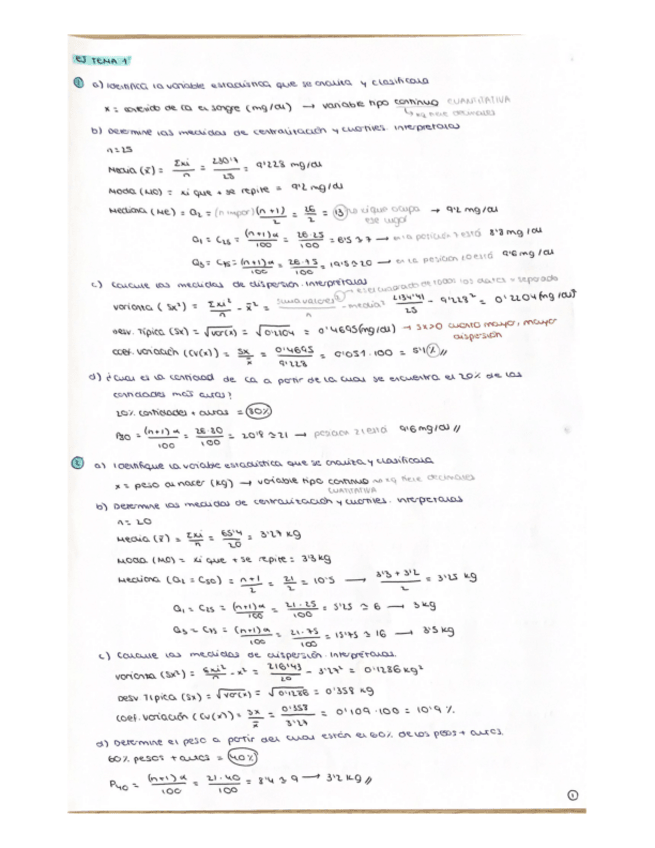 EJ TEMA 1
① a) Identifica la variable estadística que se analiza y clasifícala
x = contenido de Ca en sangre (mg/dl) → variable tipo continuo CUANTITATIVA
↳ xq tiene decimales
b) Determine las medidas de centralización y cuartiles. Interprétalas
n=25
Media (x̄) = Σxi/n = 230'7/25 = 9'228 mg/dl
Moda (Mo) = xi que + se repite = 9'2 mg/dl
Mediana (Me) = Q2 = (n impar) (n+1)/2 = 26/2 = 13 xi que ocupa ese lugar → 9'2 mg/dl
Q1 = C25 = (n+1)α/100 = 26·25/100 = 6'5 ≃ 7 → en la posición 7 está 8'8 mg/dl
Q3 = C75 = (n+1)α/100 = 26·75/100 = 19'5 ≃ 20 → en la posición 20 está 9'6 mg/dl
c) Calcule las medidas de dispersión. Interprétalas
→ es el cuadrado de todos los datos x separado
varianza (Sx²) = Σxi²/n - x̄² = suma valores²/n - media² 2134'41/25 - 9'228² = 0'2204 (mg/dl)²
desv. típica (Sx) = √var(x) = √0'2204 = 0'4695 (mg/dl) → Sx>0 cuanto mayor, mayor dispersión
coef. variación (CV(x)) = Sx/x̄ = 0'4695/9'228 = 0'051·100 = 5'1%//
d) ¿Cuál es la cantidad de Ca a partir de la cual se encuentra el 20% de las
cantidades más altas?
20% cantidades + altas = 80%
P80 = (n+1)α/100 = 26·80/100 = 20'8 ≃ 21 → posición 21 está 9'6 mg/dl //
② a) Identifique la variable estadística que se analiza y clasifícala
x = peso al nacer (kg) → variable tipo continuo xq tiene decimales
CUANTITATIVA
b) Determine las medidas de centralización y cuartiles. Interprétalas
n = 20
Media (x̄) = Σxi/n = 65'4/20 = 3'27 kg
Moda (Mo) = xi que + se repite = 3'3 kg
Mediana (Q2 = C50) = n+1/2 = 21/2 = 10'5 → 3'3 + 3'2/2 = 3'25 kg
Q1 = C25 = (n+1)α/100 = 21·25/100 = 5'25 ≃ 6 → 3 kg
Q3 = C75 = (n+1)α/100 = 21·75/100 = 15'75 ≃ 16 → 3'5 kg
c) Calcule las medidas de dispersión. Interprétalas.
varianza (Sx²) = Σxi²/n - x² = 216'43/20 - 3'27² = 0'1286 kg²
Desv Típica (Sx) = √var(x) = √0'1286 = 0'358 kg
Coef. variación (CV(x)) = Sx/x̄ = 0'358/3'27 = 0'109·100 = 10'9 %.
d) Determine el peso a partir del cual están el 60% de los pesos + altos.
60% pesos + altos = 40%
P40 = (n+1)α/100 = 21·40/100 = 8'4 ≃ 9 → 3'2 kg //
①